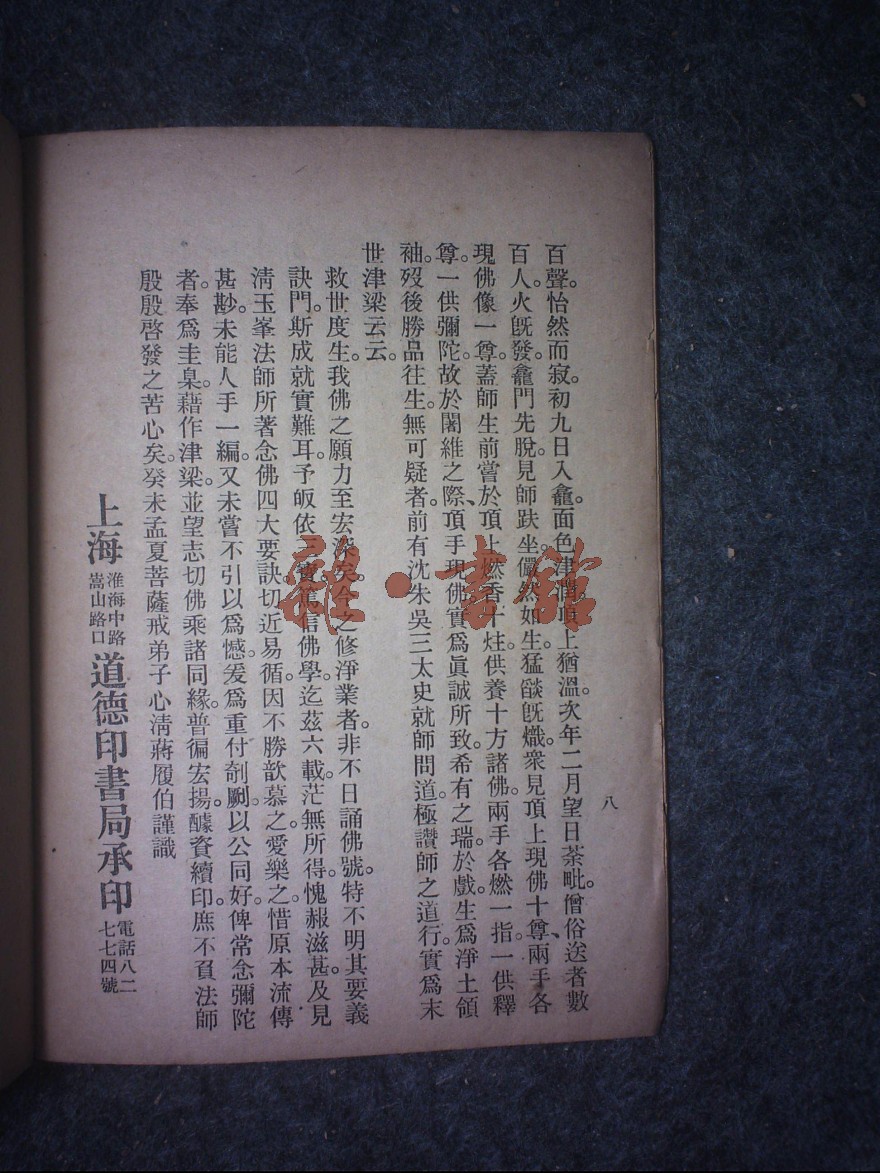 八
百聲。怡然而寂。初九日入龕。面色津潤。頂上猶溫。次年二月望日荼毗。僧俗送者數
百人。火旣發。龕門先脫。見師趺坐。儼然如生。猛燄旣熾。衆見頂上現佛十尊。兩手各
現佛像一尊。蓋師生前嘗於頂上燃香十炷。供養十方諸佛。兩手各燃一指。一供釋
尊。一供彌陀。故於闍維之際、頂手現佛。實爲眞誠所致。希有之瑞。於戲。生爲淨土領
袖。歿後勝品往生。無可疑者。前有沈朱吳三太史就師問道。極讚師之道行。實爲末
世津梁云云。
救世度生。我佛之願力至宏深矣。今之修淨業者。非不日誦佛號。特不明其要義
訣門。斯成就實難耳。予皈依三寶。篤信佛學。迄茲六載。茫無所得。愧赧滋甚。及見
淸玉峯法師所著念佛四大要訣。切近易循。因不勝歆慕之。愛樂之。惜原本流傳
甚尠。未能人手一編。又未嘗不引以爲憾。爰爲重付剞劂。以公同好。俾常念彌陀
者。奉爲圭臬。藉作津梁。並望志切佛乘諸同緣。普徧宏揚。醵資續印。庶不負法師
殷殷啓發之苦心矣。癸未孟夏菩薩戒弟子心淸蔣履伯謹識
上海 淮海中路嵩山路口 道德印書局承印 電話八二七七四號
雜·書館